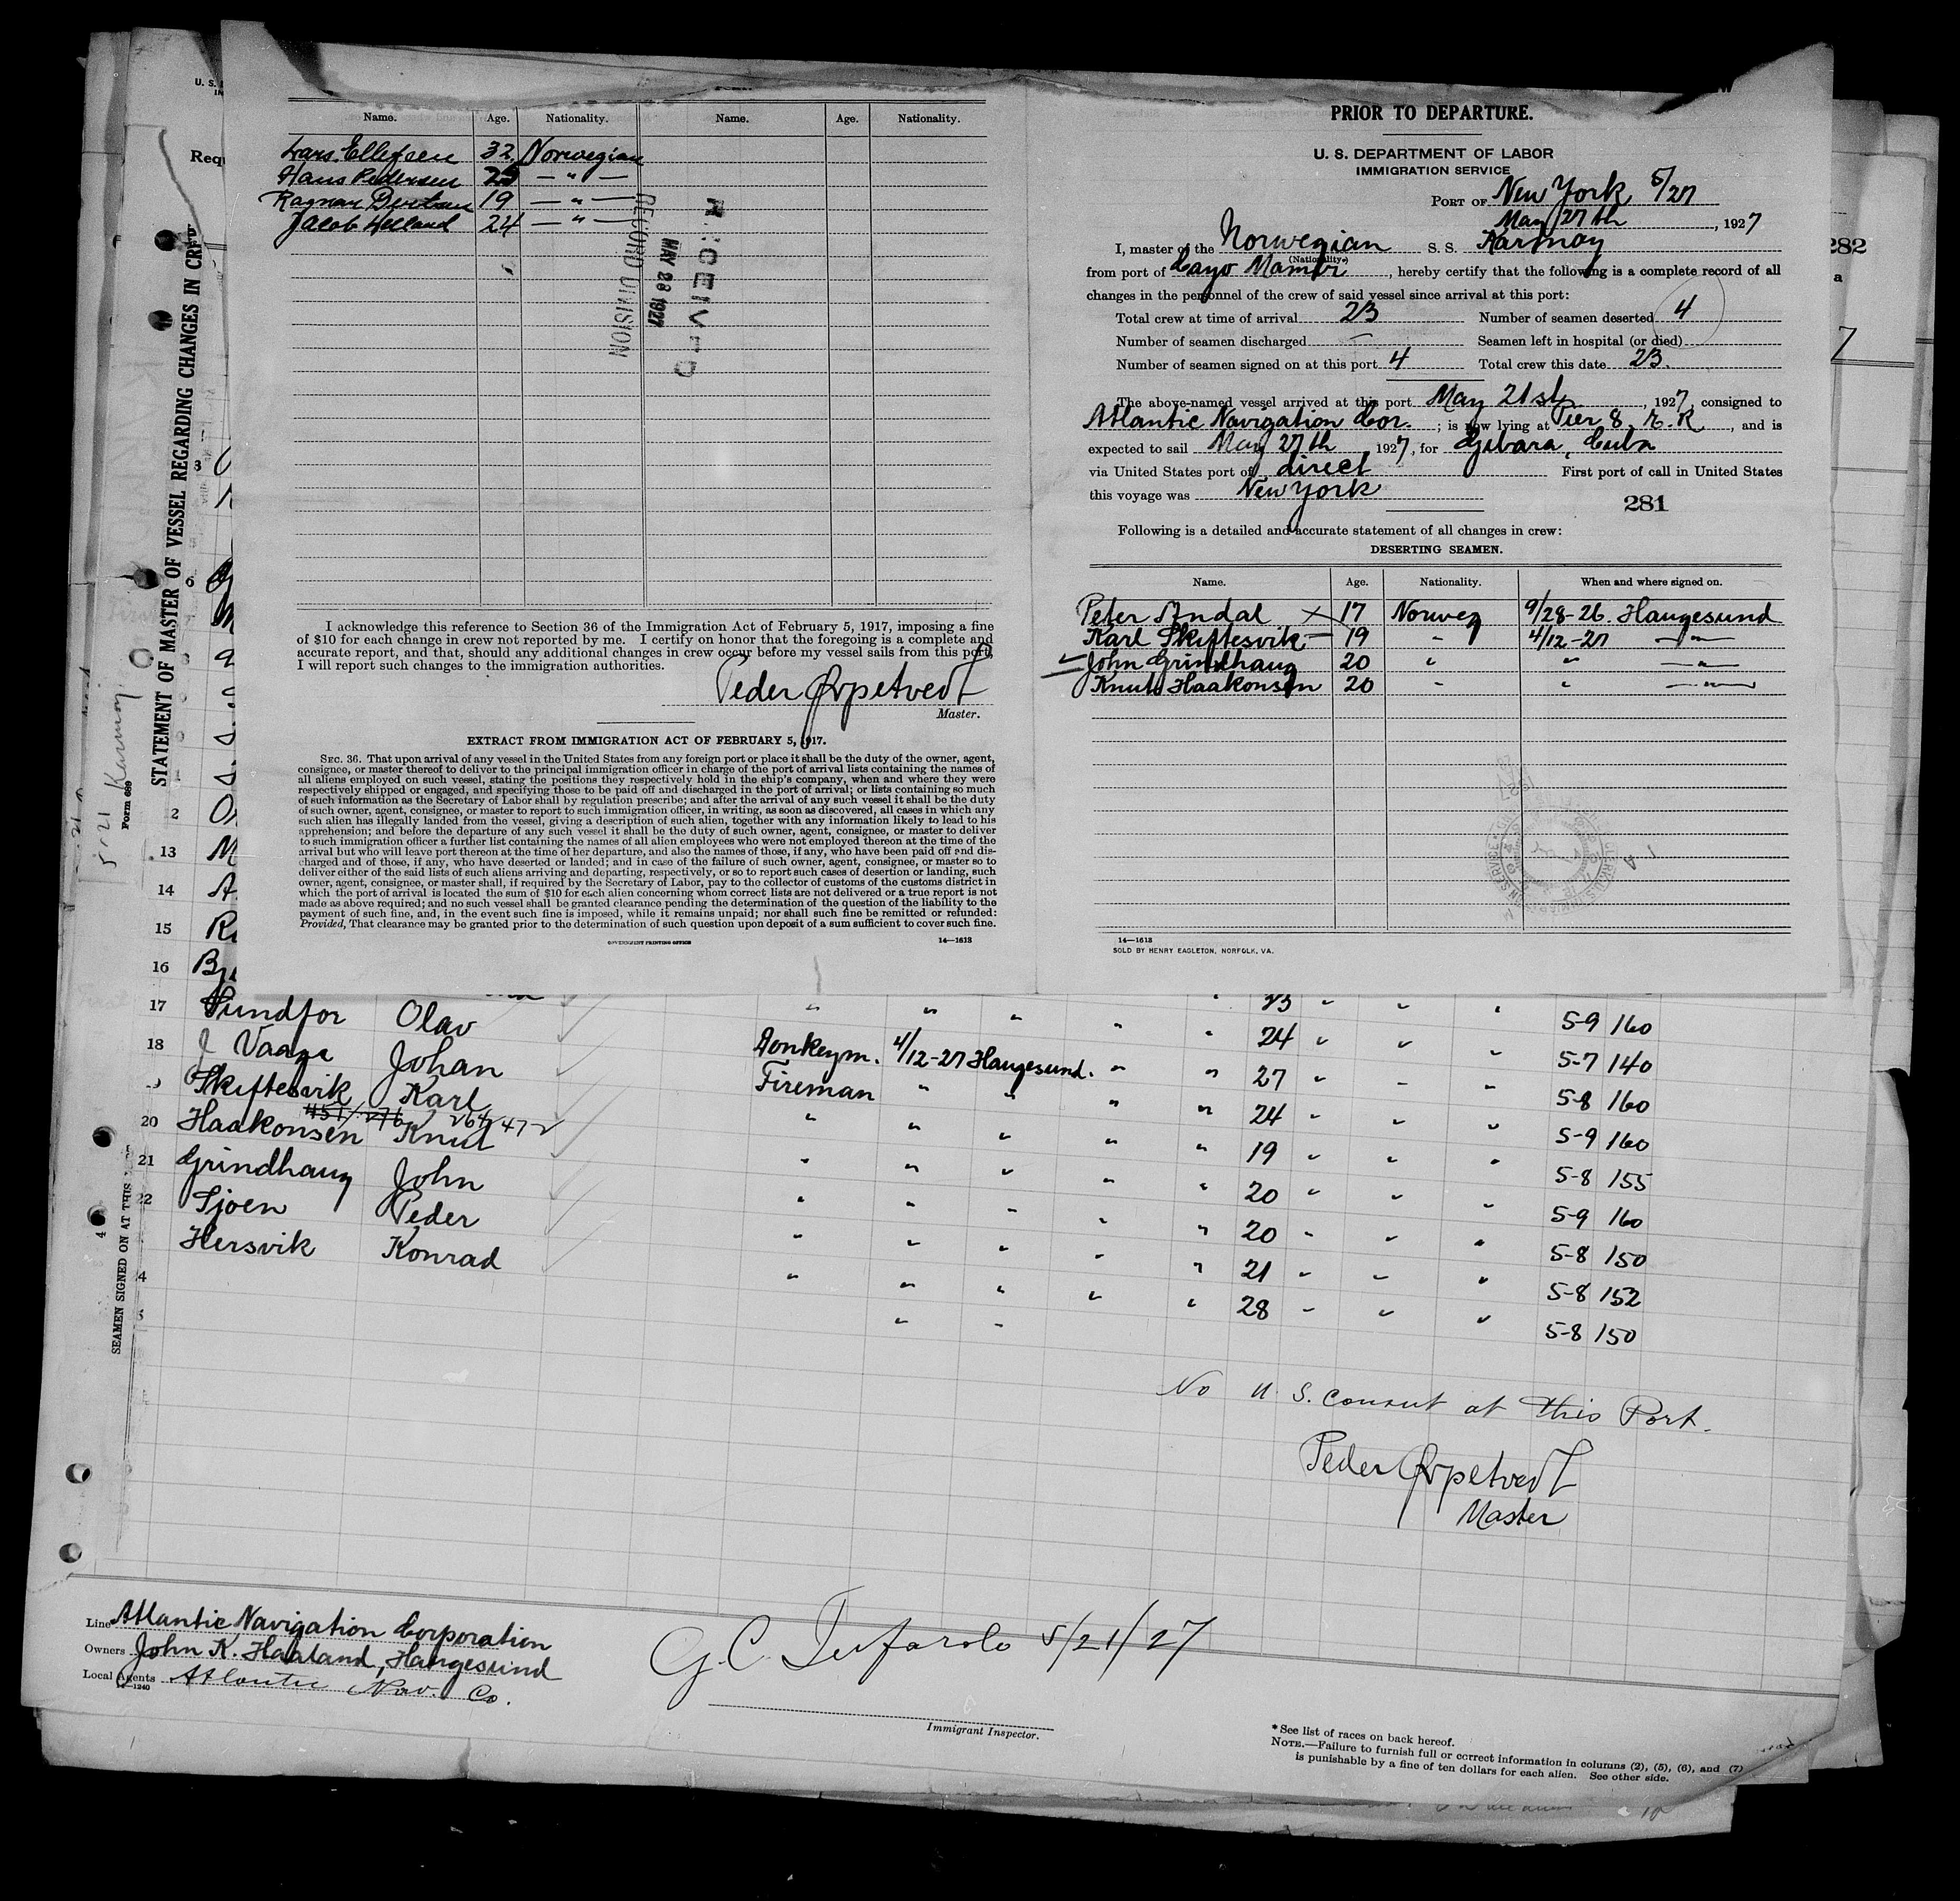 Name. Age. Nationality. Name. Age. Nationality.
Lars Ellefsen 32 Norwegian
Hans Pedersen 25 — " —
Ragnar 19 — " —
Jacob Helland 24 — " —
RECEIVED
MAY 28 1927
RECORD DIVISION
I acknowledge this reference to Section 36 of the Immigration Act of February 5, 1917, imposing a fine
of $10 for each change in crew not reported by me. I certify on honor that the foregoing is a complete and
accurate report, and that, should any additional changes in crew occur before my vessel sails from this port,
I will report such changes to the immigration authorities.
Peder
Master.
EXTRACT FROM IMMIGRATION ACT OF FEBRUARY 5, 1917.
SEC. 36. That upon arrival of any vessel in the United States from any foreign port or place it shall be the duty of the owner, agent,
consignee, or master thereof to deliver to the principal immigration officer in charge of the port of arrival lists containing the names of
all aliens employed on such vessel, stating the positions they respectively hold in the ship's company, when and where they were
respectively shipped or engaged, and specifying those to be paid off and discharged in the port of arrival; or lists containing so much
of such information as the Secretary of Labor shall by regulation prescribe; and after the arrival of any such vessel it shall be the duty
of such owner, agent, consignee, or master to report to such immigration officer, in writing, as soon as discovered, all cases in which any
such alien has illegally landed from the vessel, giving a description of such alien, together with any information likely to lead to his
apprehension; and before the departure of any such vessel it shall be the duty of such owner, agent, consignee, or master to deliver
to such immigration officer a further list containing the names of all alien employees who were not employed thereon at the time of the
arrival but who will leave port thereon at the time of her departure, and also the names of those, if any, who have been paid off and dis-
charged and of those, if any, who have deserted or landed; and in case of the failure of such owner, agent, consignee, or master so to
deliver either of the said lists of such aliens arriving and departing, respectively, or so to report such cases of desertion or landing, such
owner, agent, consignee, or master shall, if required by the Secretary of Labor, pay to the collector of customs of the customs district in
which the port of arrival is located the sum of $10 for each alien concerning whom correct lists are not delivered or a true report is not
made as above required; and no such vessel shall be granted clearance pending the determination of the question of the liability to the
payment of such fine, and, in the event such fine is imposed, while it remains unpaid; nor shall such fine be remitted or refunded:
Provided, That clearance may be granted prior to the determination of such question upon deposit of a sum sufficient to cover such fine.
GOVERNMENT PRINTING OFFICE 14—1613
PRIOR TO DEPARTURE.
U. S. DEPARTMENT OF LABOR
IMMIGRATION SERVICE
PORT OF New York 5/27
May 27th, 1927
I, master of the Norwegian S. S. Karmoy
(Nationality)
from port of Cayo Mambi, hereby certify that the following is a complete record of all
changes in the personnel of the crew of said vessel since arrival at this port:
Total crew at time of arrival 23 Number of seamen deserted 4
Number of seamen discharged — Seamen left in hospital (or died)
Number of seamen signed on at this port 4 Total crew this date 23.
The above-named vessel arrived at this port May 21st, 1927, consigned to
Atlantic Navigation Cor.; is now lying at Pier 8, E.R, and is
expected to sail May 27th, 1927, for Gibara, Cuba
via United States port of direct First port of call in United States
this voyage was New York
281
Following is a detailed and accurate statement of all changes in crew:
DESERTING SEAMEN.
Name. Age. Nationality. When and where signed on.
Peter Andal × 17 Norweg 9/28-26. Haugesund
Karl Skiftesvik — 19 " 4/12-27 — " —
John Grindhaug 20 " " — " —
Knut Haakonsen 20 " " — " —
14—1613
SOLD BY HENRY EAGLETON, NORFOLK, VA.
282
STATEMENT OF MASTER OF VESSEL REGARDING CHANGES IN CREW
Form 689
5-21 Karmoy
SEAMEN SIGNED ON AT THIS
4
12
13
14
15
16
17 Sundfor Olav 23
18 Vaage Johan 24 5-9 160
Donkeym. 4/12-27 Haugesund. " " 27 5-7 140
19 Skiftesvik Karl Fireman " " " " 24 5-8 160
264/472
20 Haakonsen Knut " " " " " 19 5-9 160
21 Grindhaug John " " " " " 20 5-8 155
22 Sjoen Peder " " " " " 20 5-9 160
Hersvik Konrad " " " " " 21 5-8 150
" " " " " 28 5-8 152
5-8 150
No U.S. Consul at this Port.
Peder
Master
Line Atlantic Navigation Corporation
Owners John K. Haaland, Haugesund
Local Agents Atlantic Nav. Co.
14—1240
G.C. 5/21/27
Immigrant Inspector.
* See list of races on back hereof.
NOTE.—Failure to furnish full or correct information in columns (2), (5), (6), and (7)
is punishable by a fine of ten dollars for each alien. See other side.